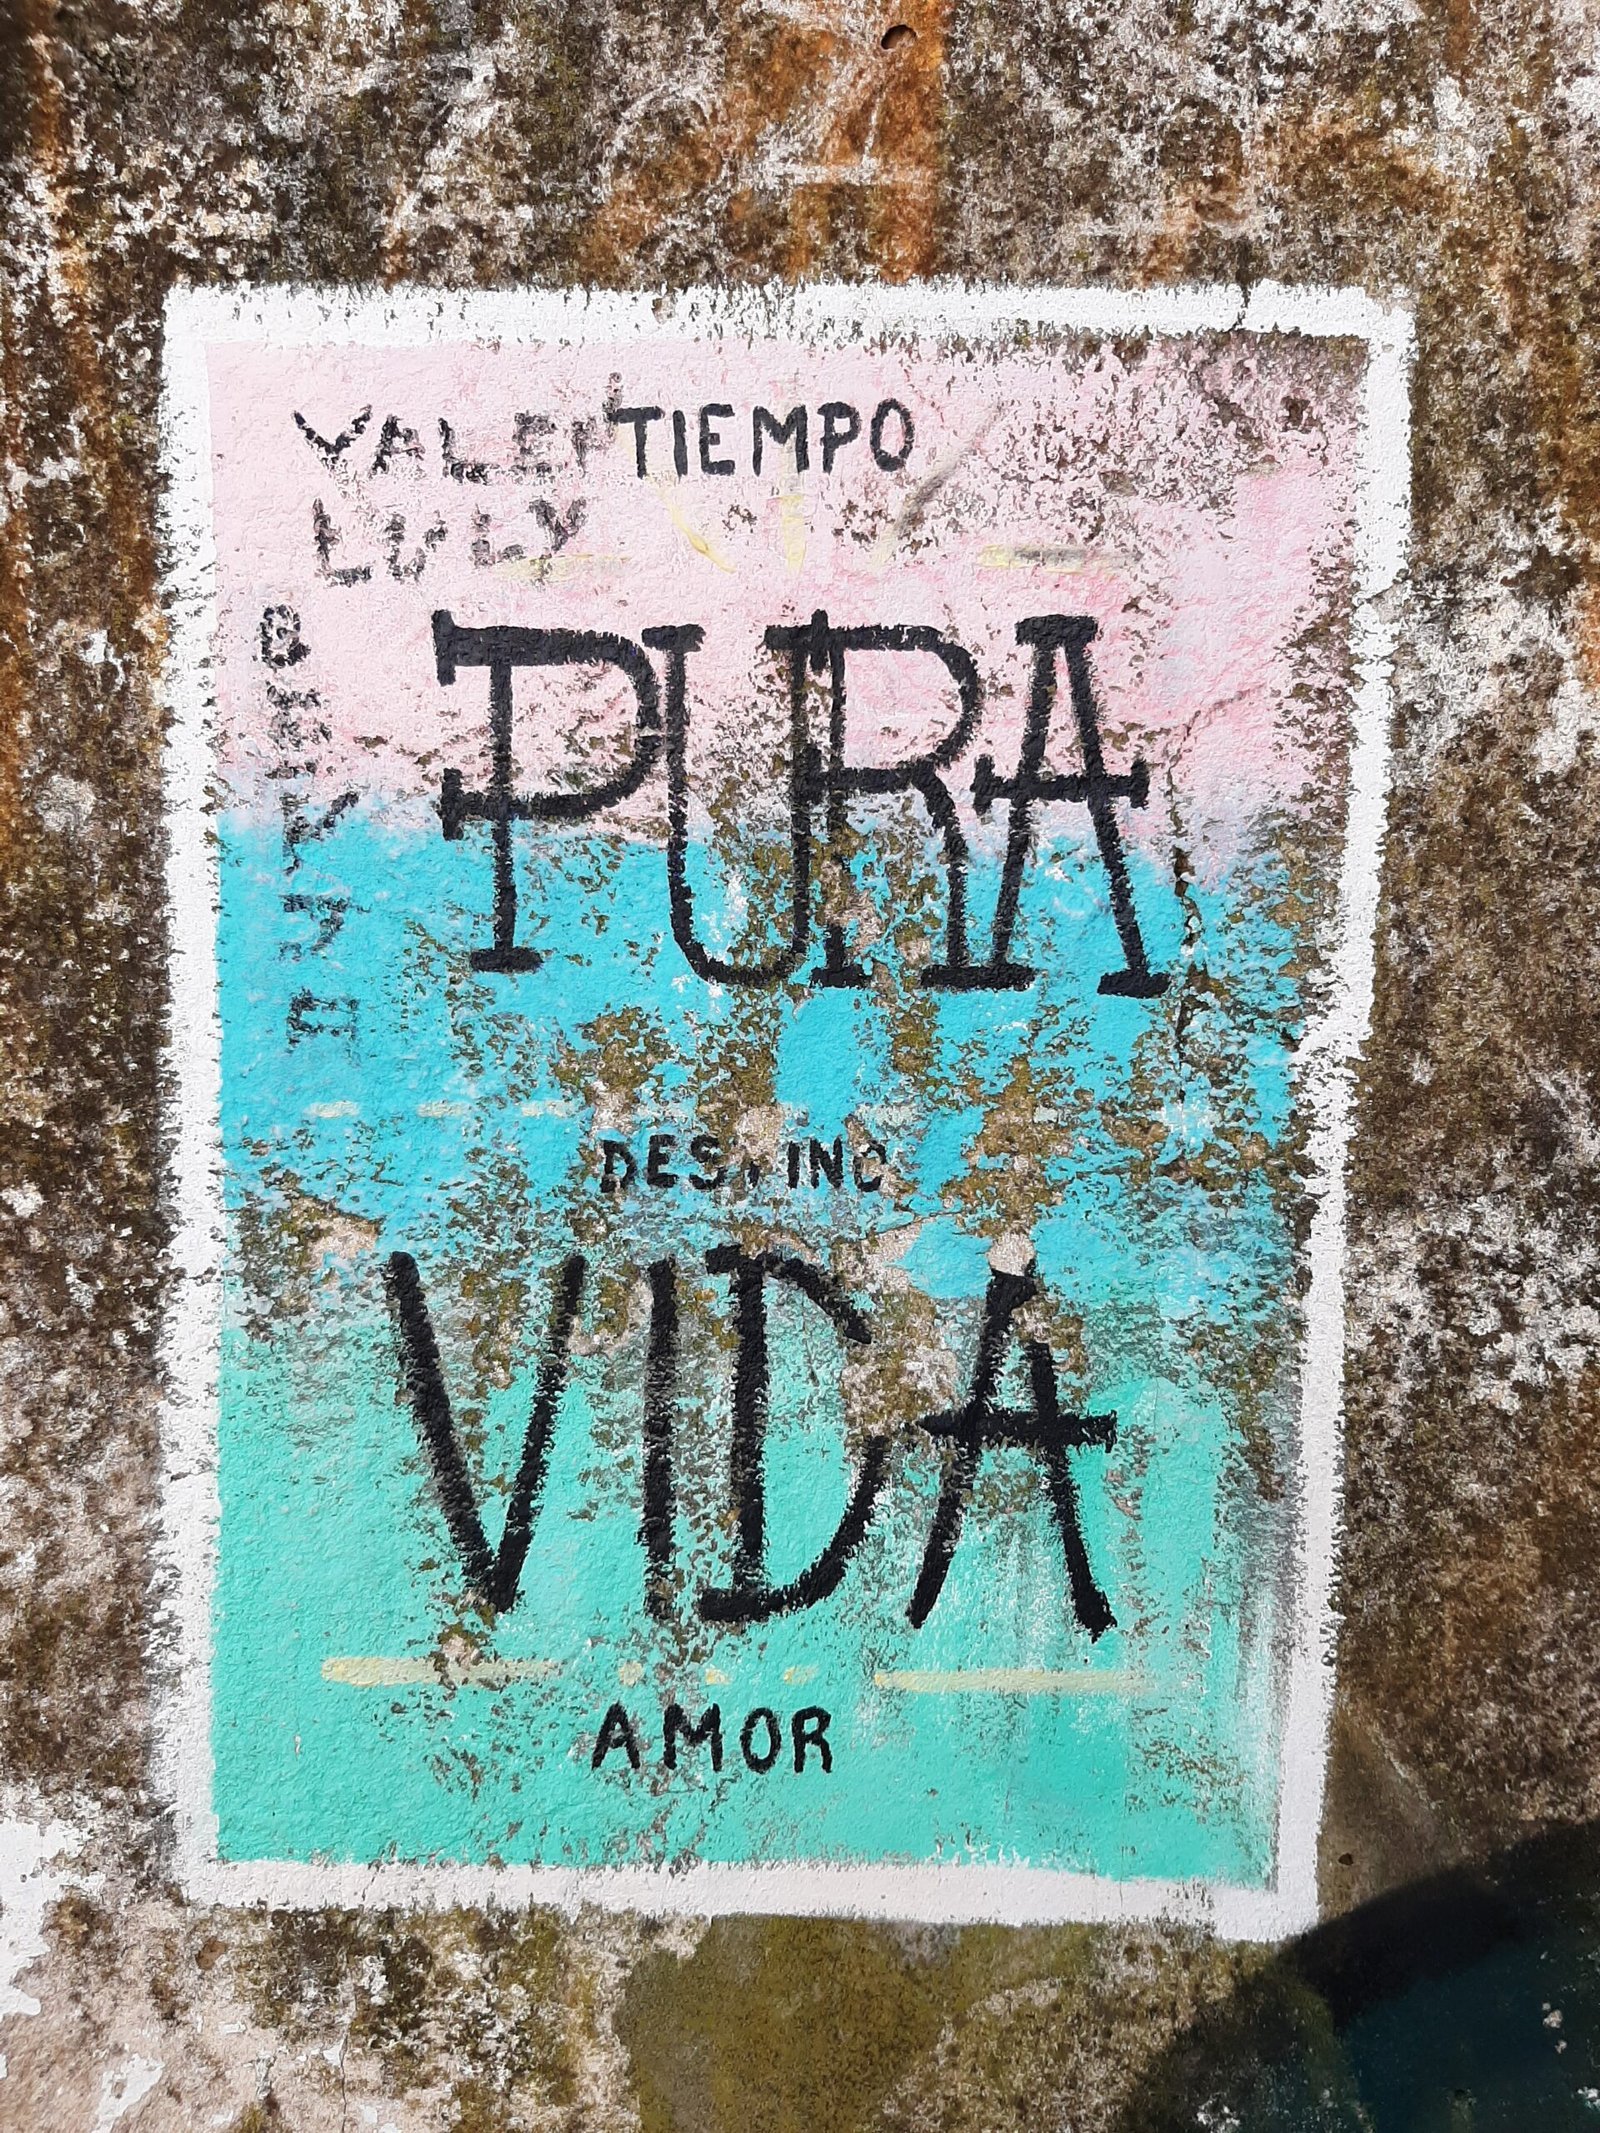 TIEMPO
LULY
PURA
DESTINO
VIDA
AMOR